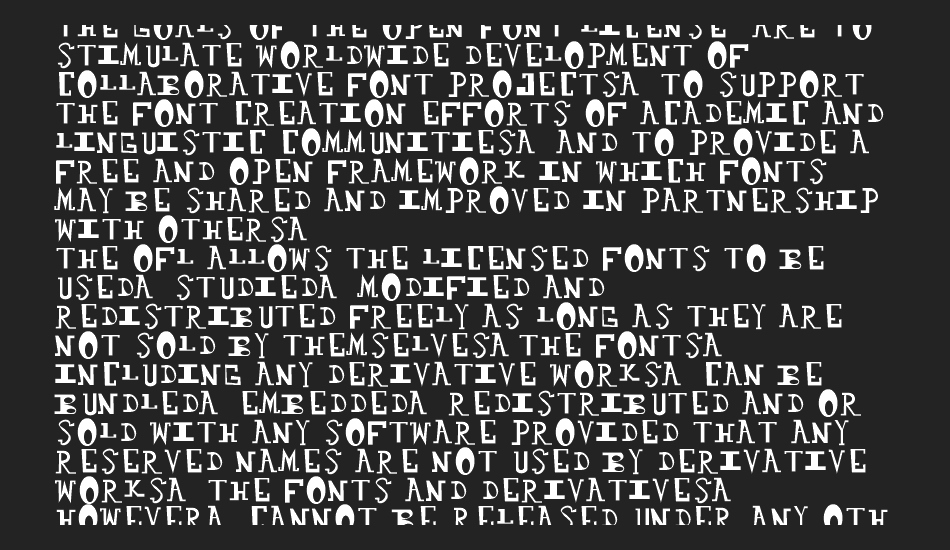 THE GOALS OF THE OPEN FONT LICENSE ARE TO
STIMULATE WORLDWIDE DEVELOPMENT OF
COLLABORATIVE FONT PROJECTSA TO SUPPORT
THE FONT CREATION EFFORTS OF ACADEMIC AND
LINGUISTIC COMMUNITIESA AND TO PROVIDE A
FREE AND OPEN FRAMEWORK IN WHICH FONTS
MAY BE SHARED AND IMPROVED IN PARTNERSHIP
WITH OTHERSA
THE OFL ALLOWS THE LICENSED FONTS TO BE
USEDA STUDIEDA MODIFIED AND
REDISTRIBUTED FREELY AS LONG AS THEY ARE
NOT SOLD BY THEMSELVESA THE FONTSA
INCLUDING ANY DERIVATIVE WORKSA CAN BE
BUNDLEDA EMBEDDEDA REDISTRIBUTED AND OR
SOLD WITH ANY SOFTWARE PROVIDED THAT ANY
RESERVED NAMES ARE NOT USED BY DERIVATIVE
WORKSA THE FONTS AND DERIVATIVESA
HOWEVERA CANNOT BE RELEASED UNDER ANY OTH